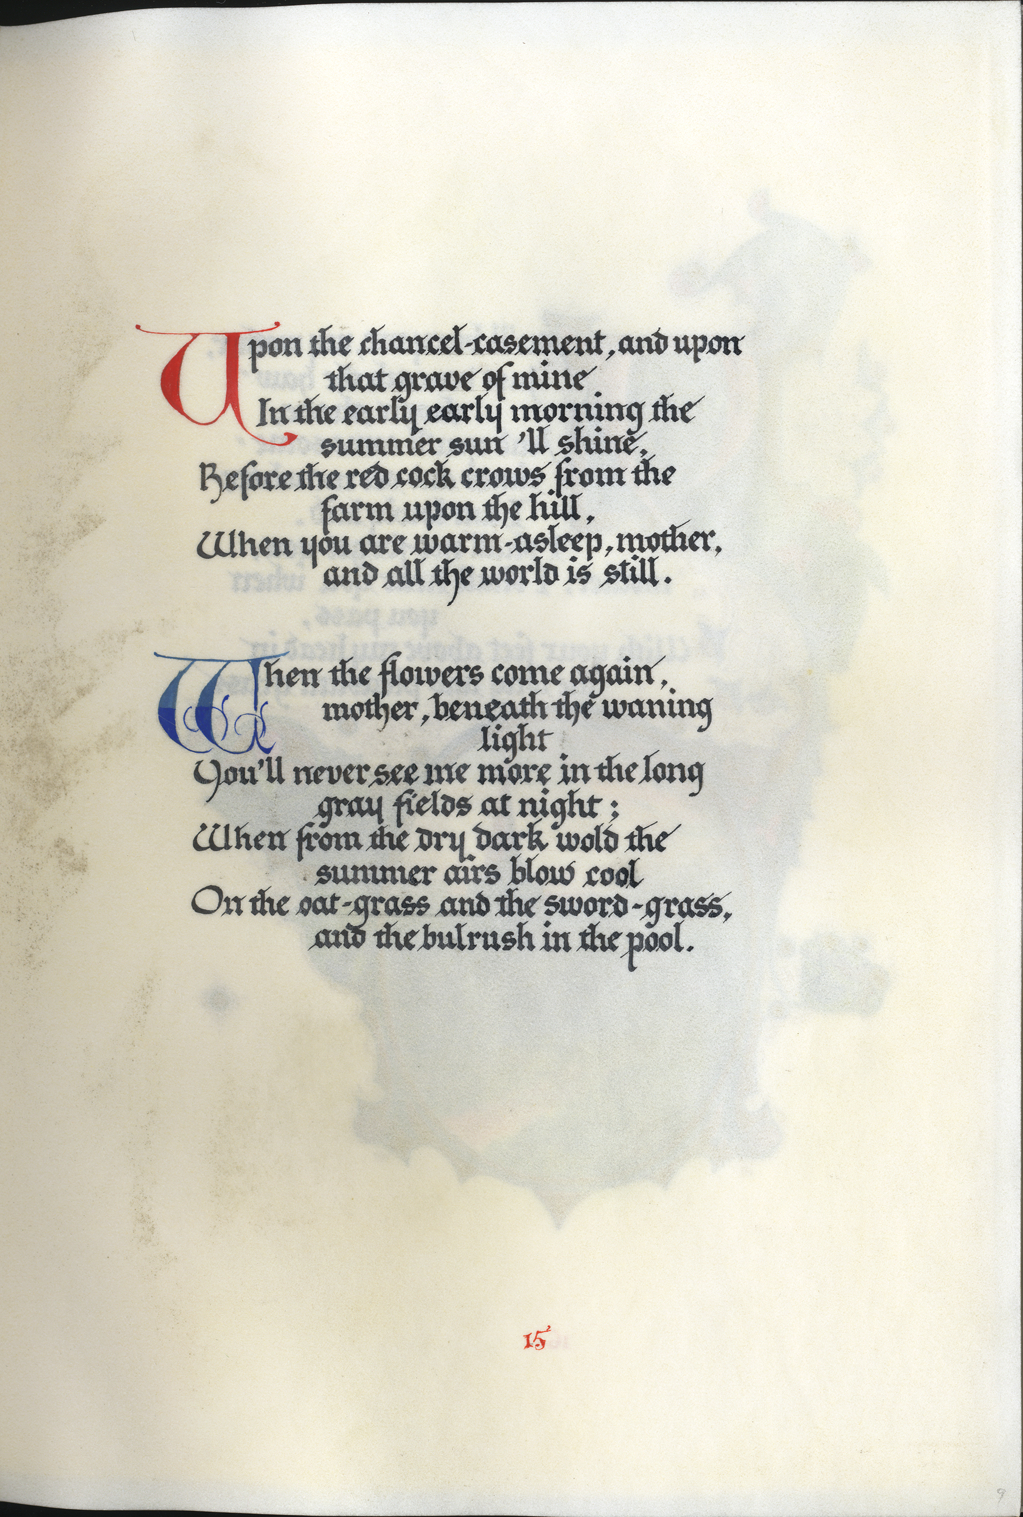 Upon the chancel-casement, and upon
that grave of mine
In the early early morning the
summer sun 'll shine,
Before the red cock crows from the
farm upon the hill,
When you are warm-asleep, mother,
and all the world is still.
When the flowers come again,
mother, beneath the waning
light
You'll never see me more in the long
gray fields at night;
When from the dry dark wold the
summer airs blow cool
On the oat-grass and the sword-grass,
and the bulrush in the pool.
15
9